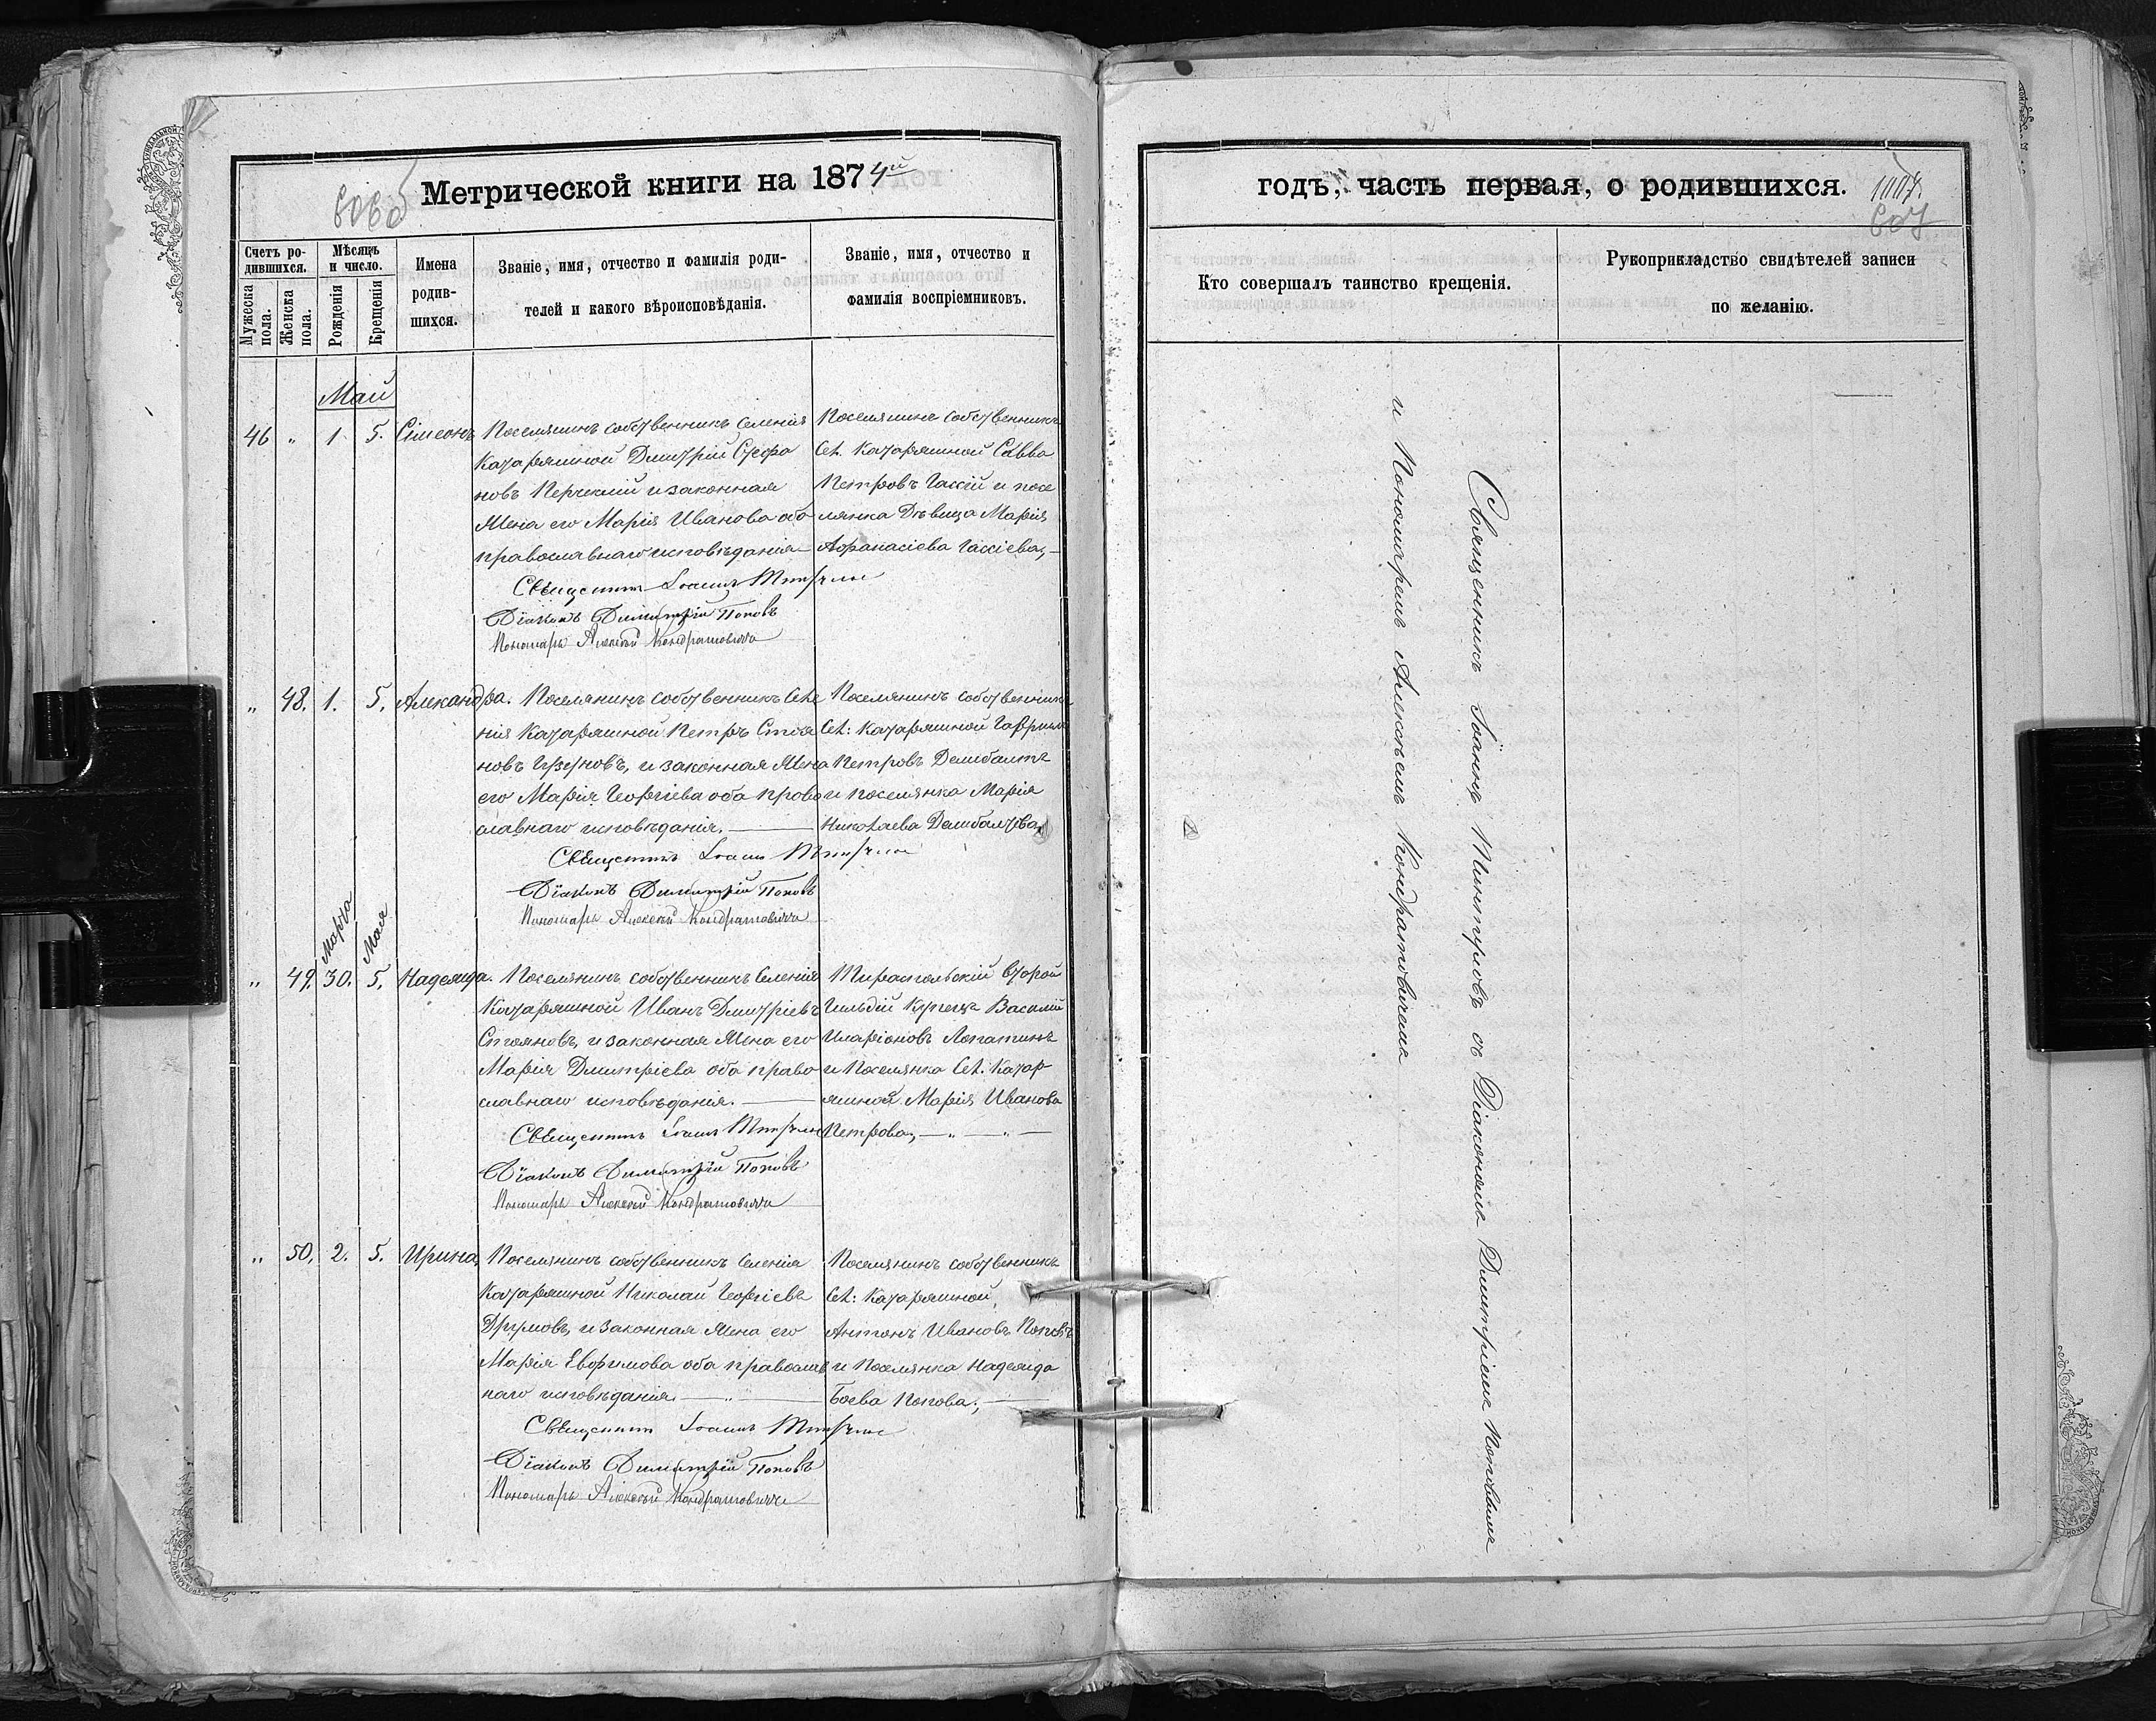 Метрической книги на 1874й
Счетъ ро-
дившихся.
Мужеска
пола.
Женска
пола.
Мѣсяцъ
и число.
Рожденія
Крещенія
Имена
родив-
шихся.
Званіе, имя, отчество и фамилія роди-
телей и какого вѣроисповѣданія.
Званіе, имя, отчество и
фамилія воспріемниковъ.
Май
46 " 1 5. Сімеонъ
Поселянинъ собственникъ селенія
Катаржиной Дмитрій Стефа
новъ и законная
Жена его Марія Иванова оба
православнаго исповѣданія
Поселянинъ собственникъ
Сел. Катаржиной Савва
Петровъ Гассій и посе
лянка Дѣвица Марія
Афанасіева Гассіева,
Священникъ Іоаннъ
Діаконъ Димитрій Поповъ
Пономарь Алексѣй Кондратовичъ
" 48. 1. 5. Александра.
Поселянинъ собственникъ Селе
нія Катаржиной Петръ Стоя
новъ Узуновъ, и законная Жена
его Марія Георгіева оба право
славнаго исповѣданія.
Поселянинъ собственникъ
Сел: Катаржиной Гавріилъ
Петровъ
и поселянка Марія
Николаева
Священникъ Іоаннъ
Діаконъ Димитрій Поповъ
Пономарь Алексѣй Кондратовичъ
Марта Мая
" 49. 30. 5. Надежда.
Поселянинъ собственникъ Селенія
Катаржиной Иванъ Дмитріевъ
Стояновъ, и законная Жена его
Марія Дмитріева оба право
славнаго исповѣданія.
Тираспольскій второй
Гильдіи Купецъ Василій
Иларіоновъ Лопатинъ
и Поселянка Сел. Катар-
жиной Марія Иванова
Петрова,
Священникъ Іоаннъ
Діаконъ Димитрій Поповъ
Пономарь Алексѣй Кондратовичъ
" 50. 2. 5. Ирина
Поселянинъ собственникъ Селенія
Катаржиной Николай Георгіевъ
Друмовъ, и законная Жена его
Марія Евфимова оба православ
наго исповѣданія
Поселянинъ собственникъ
Сел: Катаржиной,
Антонъ Ивановъ Поповъ
и Поселянка Надежда
Боева Попова;
Священникъ Іоаннъ
Діаконъ Димитрій Поповъ
Пономарь Алексѣй Кондратовичъ
годъ, часть первая, о родившихся.
607
Кто совершалъ таинство крещенія.
Рукоприкладство свидѣтелей записи
по желанію.
Священникъ Іоаннъ съ Діакономъ Димитріемъ Поповымъ
и Пономаремъ Алексѣемъ Кондратовичемъ